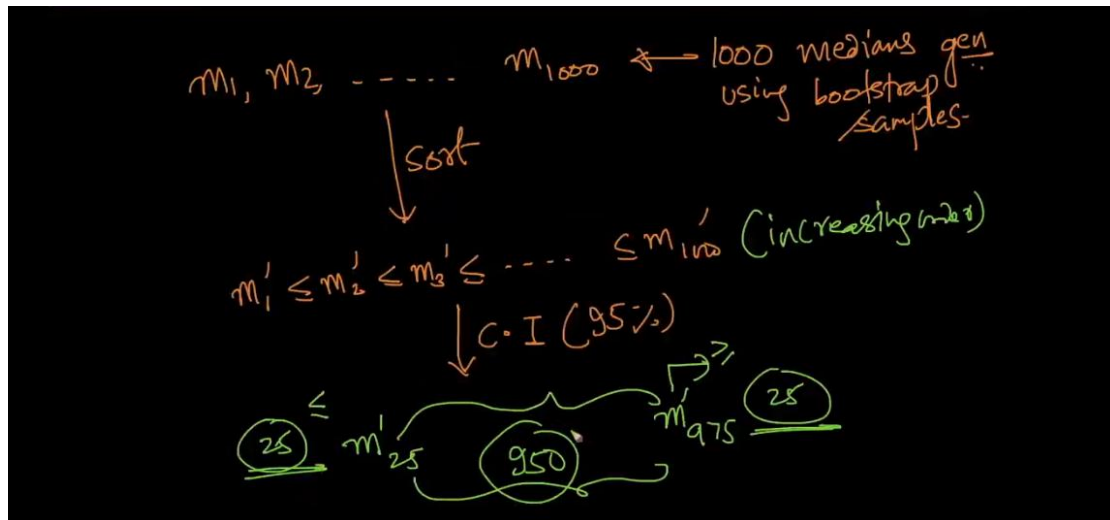 m₁, m₂, ----- m₁₀₀₀ ← 1000 medians gen
using bootstrap
samples-
sort
m₁' ≤ m₂' ≤ m₃' ≤ ---- ≤ m₁₀₀₀' (increasing order)
C. I (95%)
25 ≤ m'₂₅ 950 m'₉₇₅ ≥ 25